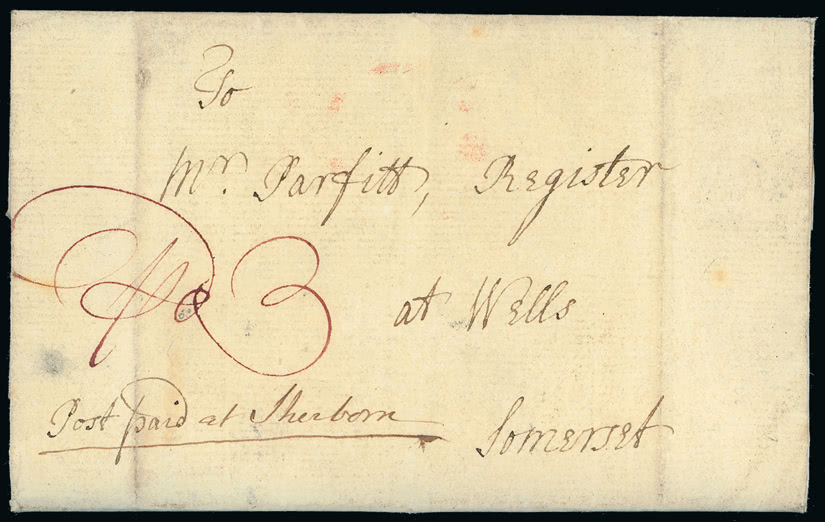 To
Mr. Parfitt, Register
Pd 3
at Wells
Post paid at Sherborn
Somerset